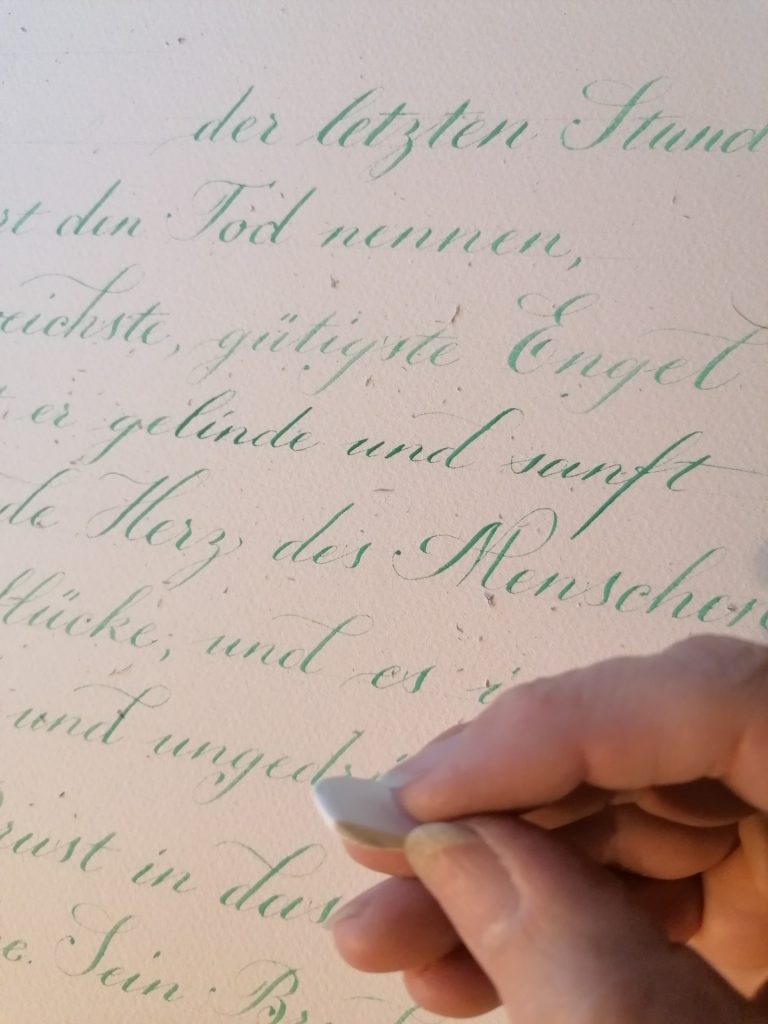 der letzten Stund
rt den Tod nennen,
reichste, gütigste Engel
er gelinde und sanft
de Herz des Menschen
flücke, und es i
und ungedrü
Brust in das
e. Sein Br